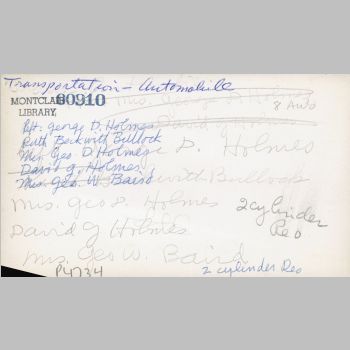 Transportation - Automobile
MONTCLAIR 60910
LIBRARY.
Mrs. George D. Holmes
8 Auto
David G. Holmes
Rt. George D. Holmes
Ruth Beckwith Bullock
Mrs Geo D Holmes
David G. Holmes
Mrs. Geo. W. Baird
D. Holmes
with Bullock
Mrs. Geo D. Holmes
2 cylinder
Reo
David G Holmes
Mrs. Geo W. Baird
P4734
2 cylinder Reo